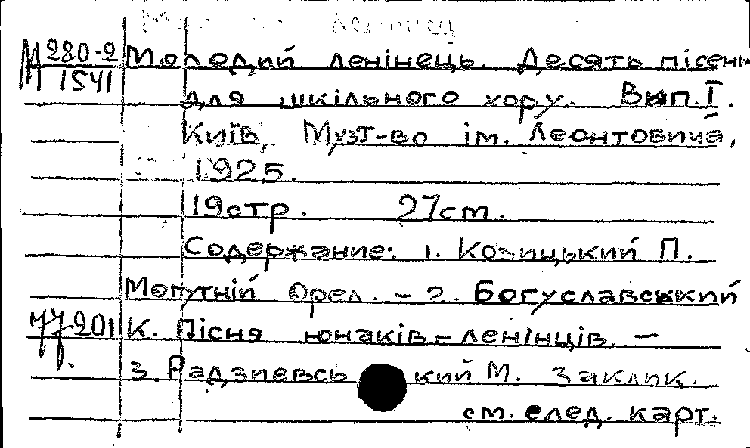 М 280-2 Молодий ленінець. Десять пісень
1541 для шкільного хору. Вип. I.
Київ, Музт-во ім. Леонтовича,
1925.
19стр. 27см.
Содержание: 1. Козицький П.
Могутній Орел. - 2. Богуславський
К. Пісня юнаків-ленінців. -
3. Радзиевський М. Заклик.
см. след. карт.